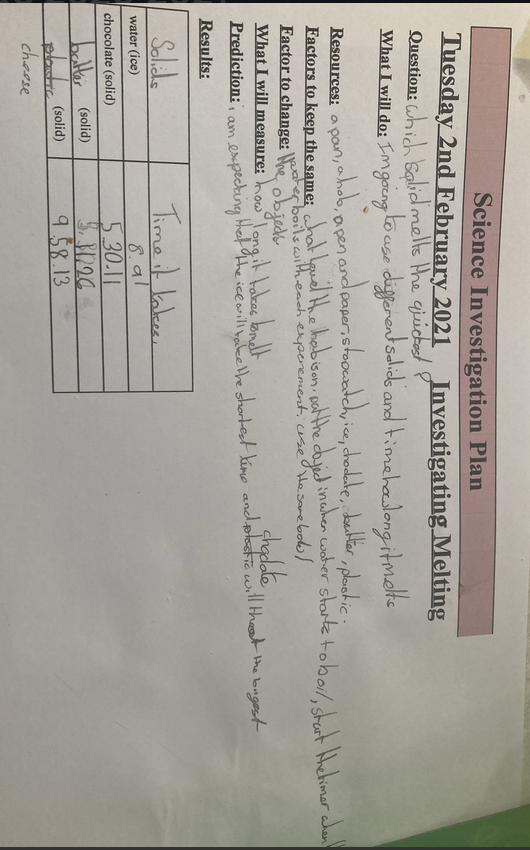 Science Investigation Plan
Tuesday 2nd February 2021 Investigating Melting
Question: which solid melts the quickest?
What I will do: I'm going to use different solids and time how long it melts
Resources: a pan, a hob, a pen and paper, stopwatch, ice, choclate, butter, plastic.
Factors to keep the same: what level the hob is on. put the object in when water starts to boil, start the timer when
water boils with each experement. use the same bowl
Factor to change: the objects
What I will measure: how long it takes to melt
choclate
Prediction: i am expecting that the ice will take the shortest time and plastic will the longest
Results:
Solids Time it takes.
water (ice) 8.91
chocolate (solid) 5.30.11
butter (solid) 26
plastic (solid) 9.58.13
cheese